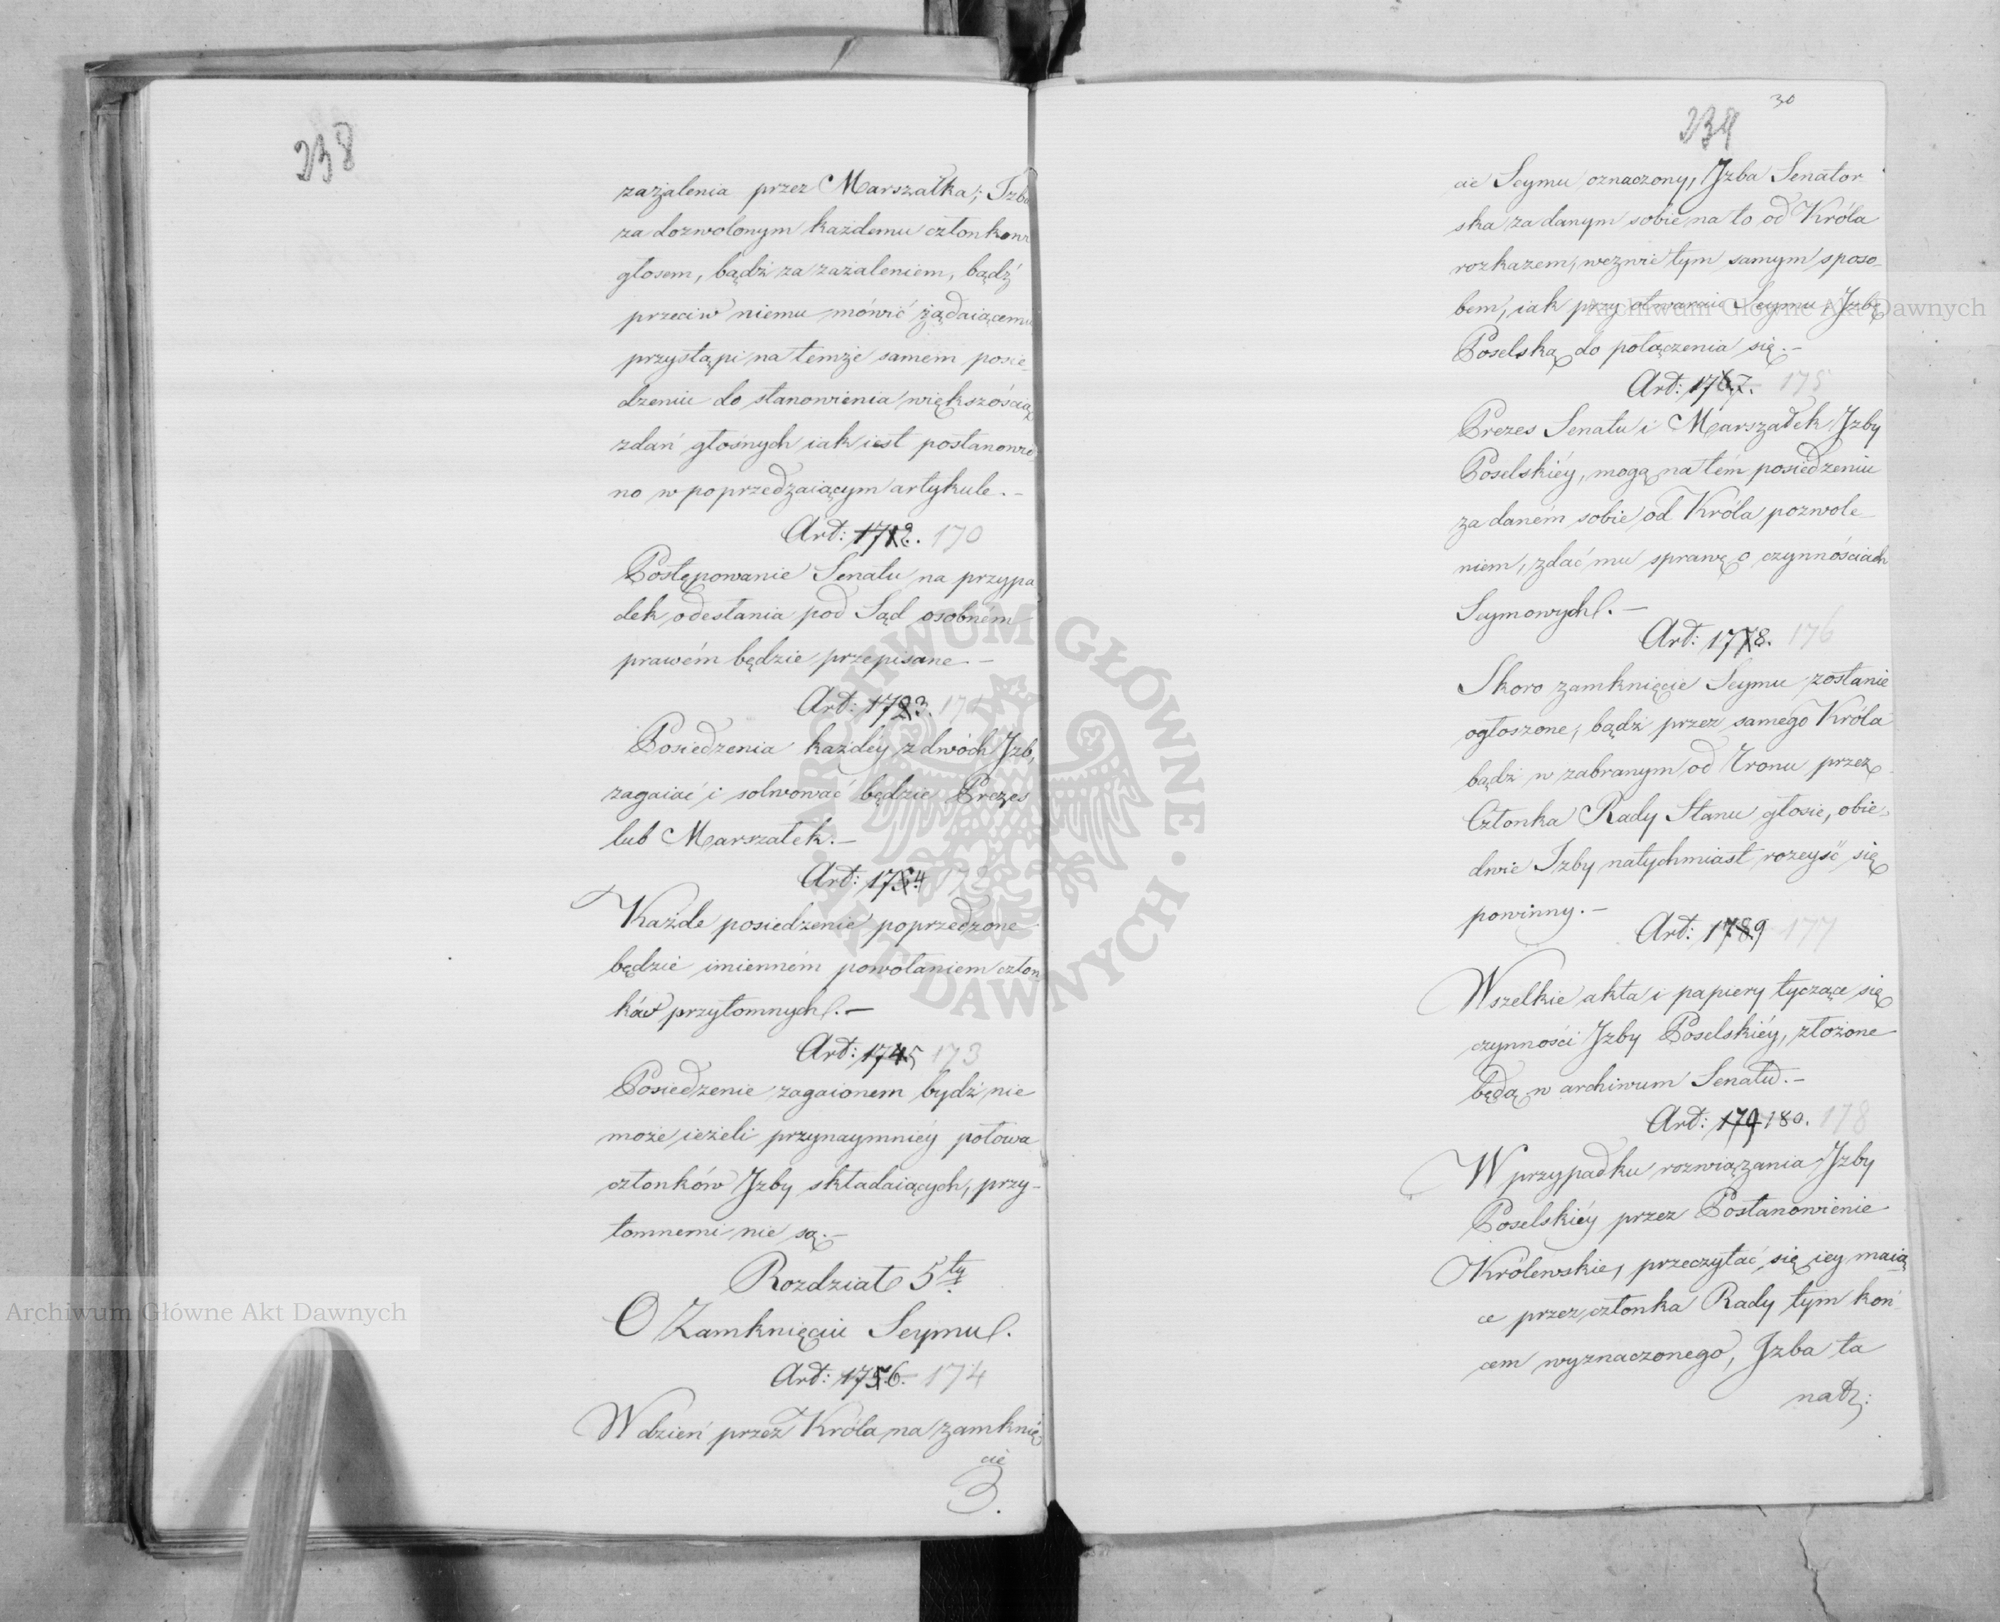 238
zażalenia przez Marszałka; Izba
za dozwolonym każdemu członkowi
głosem, bądź za zażaleniem, bądź
przeciw niemu mówić żądaiącemu
przystąpi na temże samem posie-
dzeniu do stanowienia większością
zdań głośnych iak iest postanowio
no w poprzedzaiącym artykule.-
Art: 1712. 170
Postępowanie Senatu na przypa
dek odesłania pod Sąd osobném
prawém będzie przepisane.-
Art: 1723.
Posiedzenia każdéy z dwóch Jzb,
zagaiać i solwować będzie Prezes
lub Marszałek.-
Art: 1734
Każde posiedzenie poprzedzone
będzie imienném powołaniem człon
ków przytomnych.-
Art: 1745 173
Posiedzenie zagaionem bydź nie
może ieżeli przynaymniéy połowa
członków Jzby składaiących, przy-
tomnemi nie są.-
Rozdział 5ty
O Zamknięciu Seymu.
Art: 1756. 174
W dzień przez Króla na zamknię
cie
3.
30
239
cie Seymu oznaczony, Jzba Senator
ska za danym sobie na to od Króla
rozkazem, wezwie tym samym sposo-
bem, iak przy otwarcie Seymu, Jzbę
Poselską do połączenia się.-
Art: 1767. 175
Prezes Senatu i Marszałek Jzby
Poselskiéy, mogą na tém posiedzeniu
za daném sobie od Króla pozwole
niem, zdać mu sprawę o czynnościach
Seymowych.-
Art: 1778. 176
Skoro zamknięcie Seymu zostanie
ogłoszone, bądź przez samego Króla
bądź w zabranym od Tronu przez
Członka Rady Stanu głosie, obie-
dwie Izby natychmiast rozeyść się
powinny.-
Art: 1789 177
Wszelkie akta i papiery tyczące się
czynności Jzby Poselskiéy, złożone
będą w archiwum Senatu.-
Art: 179 180. 178
W przypadku rozwiązania Jzby
Poselskiéy przez Postanowienie
Królewskie, przeczytać się iey maią
ce przez członka Rady tym koń
cem wyznaczonego, Jzba ta
natz:
Archiwum Główne Akt Dawnych
Archiwum Główne Akt Dawnych
ARCHIWUM GŁÓWNE · AKT DAWNYCH ·